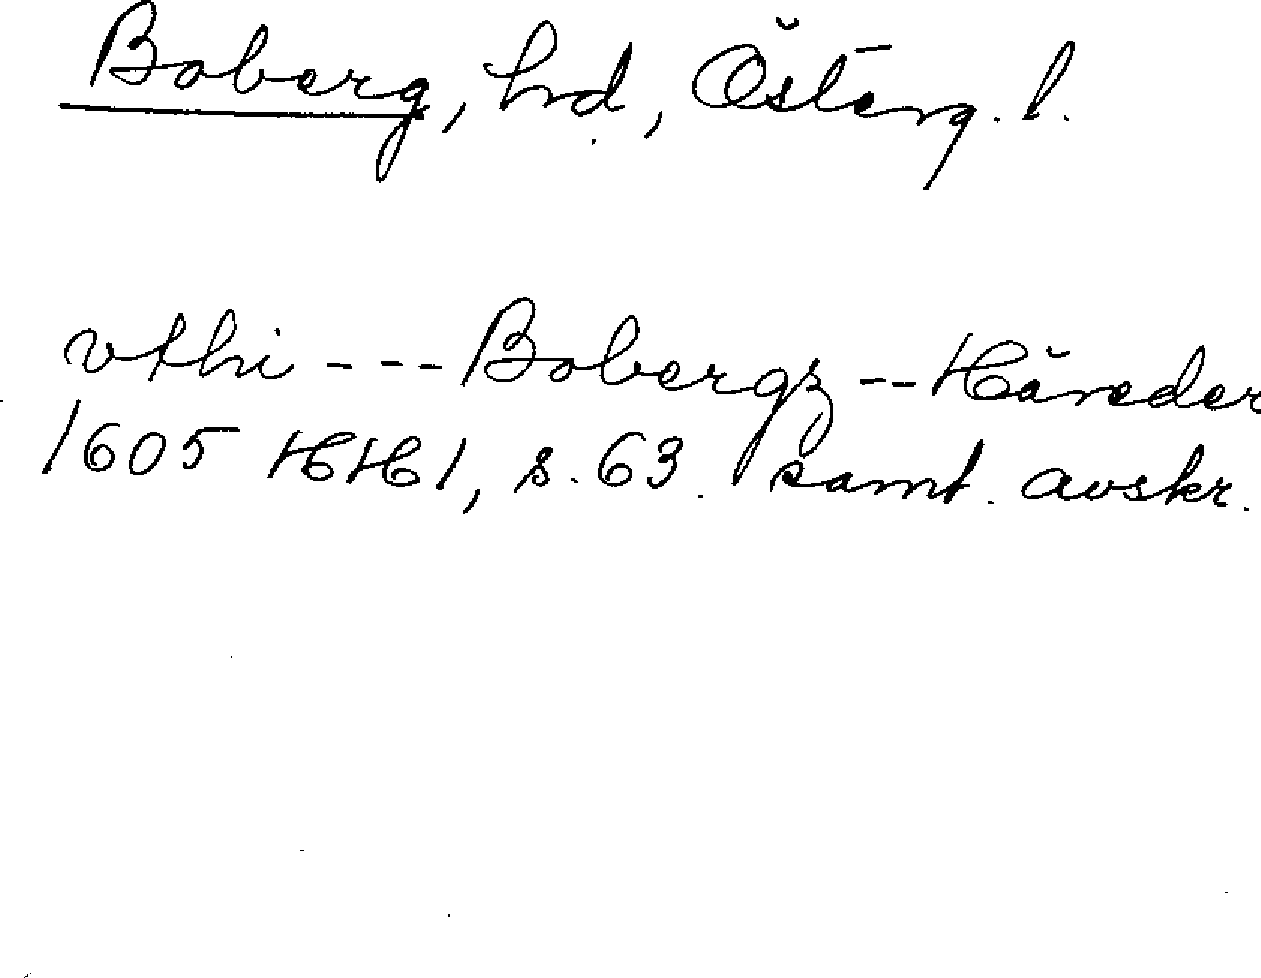 Boberg, hrd, Österg. l.
vthi --- Bobergz -- Häreder
1605 HH 1, s. 63. samt. avskr.